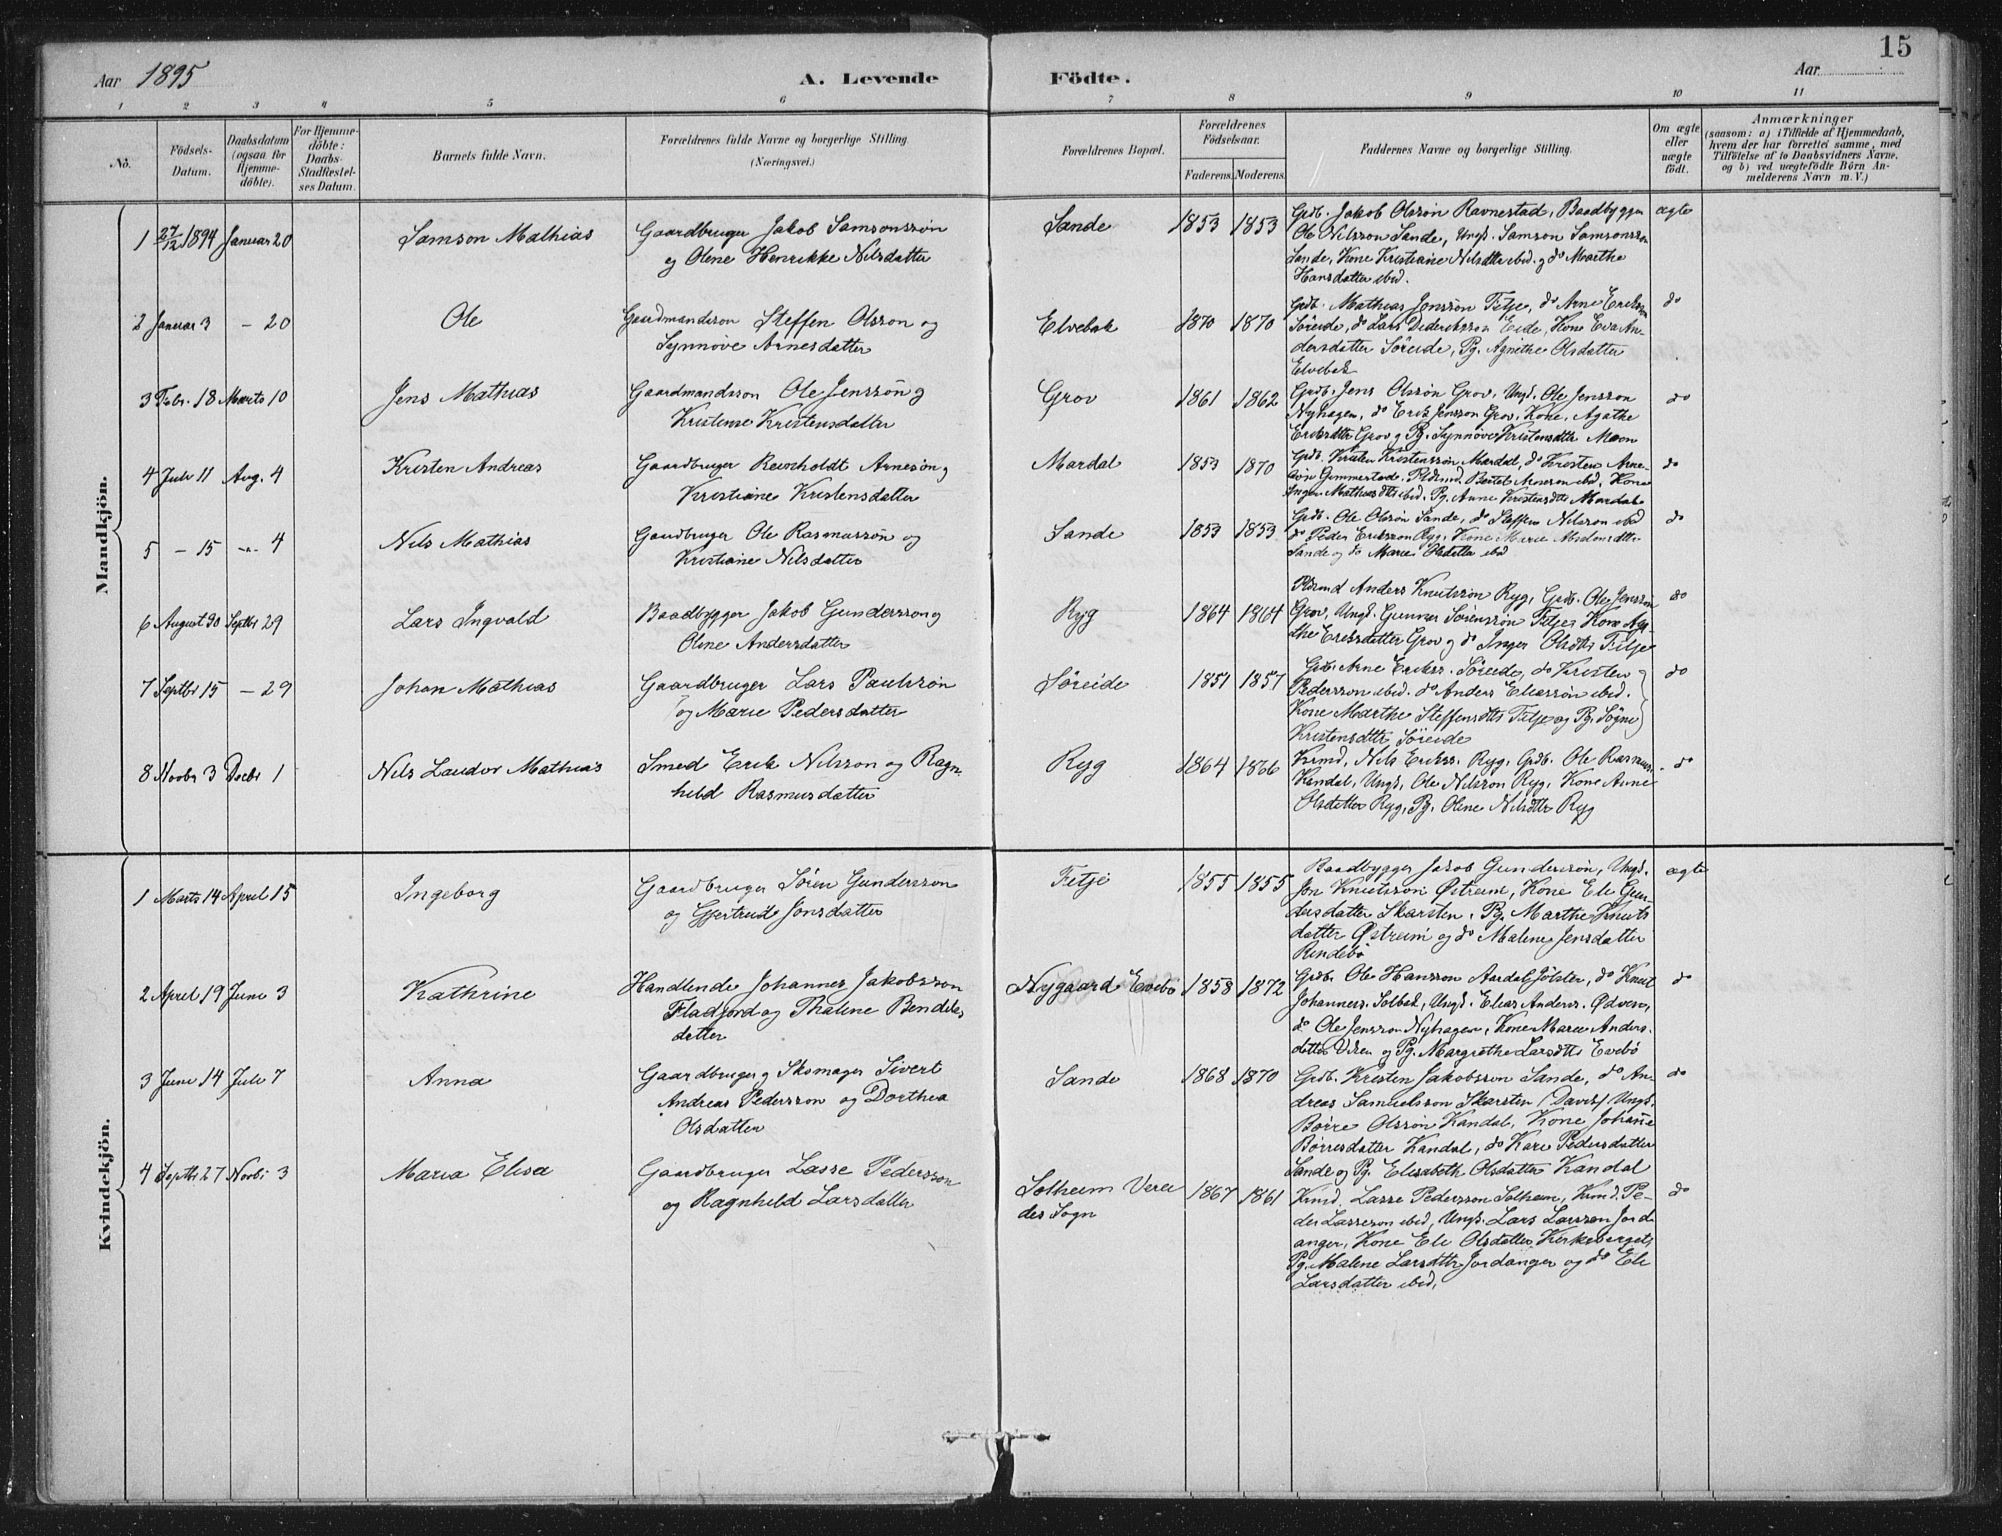 15
Aar 1895
A. Levende Födte.
Aar
1 2 3 4 5 6 7 8 9 10 11
No.
Födsels-Datum.
Daabsdatum (ogsaa for Hjemme-döbte).
For Hjemme-döbte: Daabs-Stadfæstel-ses Datum.
Barnets fulde Navn.
Forældrenes fulde Navne og borgerlige Stilling (Næringsvei.)
Forældrenes Bopæl.
Forældrenes Födselsaar.
Faderens. Moderens.
Faddernes Navne og borgerlige Stilling.
Om ægte eller uægte födt.
Anmærkninger
(saasom: a) i Tilfælde af Hjemmedaab,
hvem der har forrettet samme, med
Tilföielse af to Daabsvidners Navne,
og b) ved uægtefödte Börn An-
melderens Navn m. V.)
Mandkjön.
1 27/12 1894 Januar 20 Samson Mathias
Gaardbruger Jakob Samsonssön
og Oline Henrikke Nilsdatter
Sande 1853 1853
Grdb. Jakob Olssön Ravnestad, Baadbygger
Ole Nilsson Sande, Ungk. Samson Samsonsson
Sande, Kone Kristiane Nilsdtter ibid. og do Marthe
Hansdatter ibid.
ægte
2 Januar 3 – 20 Ole
Gaardmandssön Steffen Olsson og
Synnöve Arnesdatter
Elvebak 1870 1870
Grdb. Mathias Jonssön Fitje, do Arne Eriksson
Söreide, do Lars Dideriksson Eide, Kone Eva An-
dersdatter Söreide, Pg. Agnethe Olsdatter
Elvebak
do
3 Febr. 18 Marts 10 Jens Mathias
Gaardmandsson Ole Jenssön og
Kristense Kristensdatter
Grov 1861 1862
Grdb. Jens Olssön Grov, Ungk. Ole Jensson
Nyhagen, do Erik Jensson Grov, Kone Agathe
Eriksdtter Grov og Pg. Synnöve Kristensdtter Moen
do
4 Juli 11 Aug. 4 Kristen Andreas
Gaardbruger Reinholdt Arnesön og
Kristiane Kristensdatter
Mardal 1853 1870
Grdb. Kristen Kristenssön Mardal, do Kristen Arne-
sön Gimmestad, Pldsmd. Bertel Arneson ibid, Kone
Inger Mathiasdtts ibid. Pg. Anne Kristiansdtts Mardal
do
5 – 15 – 4 Nils Mathias
Gaardbruger Ole Rasmussön og
Kristiane Nilsdatter
Sande 1853 1853
Grdb. Ole Olssön Sande, do Steffen Nilsson ibid
do Peder Eriksson Ryg, Kone Marie
Sande og do Marie Olsdatter ibid
do
6 August 30 Septbr 29 Lars Ingvald
Baadbygger Jakob Gundersson og
Oline Andersdatter
Ryg 1864 1864
Pldsmd Anders Knutsson Ryg, Grdb. Ole Jensson
Grov, Ungk. Gunner Sörenssön Fitje, Kone Aga-
the Eriksdatter Grov og do Inger Olsdtts Fitje
do
7 Septbr 15 – 29 Johan Mathias
Gaardbruger Lars Paulsson
og Marie Pedersdatter
Söreide 1851 1857
Grdb. Arne Erikss. Söreide, do Kristen
Pedersson ibid. do Anders Eliassön ibid.
Kone Marthe Steffensdtts Fitje og Pg. Sögne
Kristensdtter Söreide
do
8 Novbr 3 Decbr 1 Nils Laudor Mathias
Smed Erik Nilsson og Ragn-
hild Rasmusdatter
Ryg 1864 1866
Krmd. Nils Erikss. Ryg, Grdb. Ole Rasmuss.
Kandal, Ungk. Ole Nilsson Ryg, Kone Anne
Olsdatter Ryg, Pg. Oline Nilsdtter Ryg
do
Kvindekjön.
1 Marts 14 April 15 Ingeborg
Gaardbruger Sören Gundersson
og Gjertrud Jonsdatter
Fitje 1855 1855
Baadbygger Jakob Gunderssön, Ungk.
Jon Knutsson Østreim, Kone Eli Gun-
dersdatter Skarsten, Pg. Marthe Knuts
datter Østreim og do Malene Jensdatter
Rindebö
ægte
2 April 19 Juni 3 Kathrine
Handlende Johannes Jakobsson
Fladjord og Thaline Bendiks
datter
Nygaard Evebö 1858 1872
Grdb. Ole Hansson Aardal Jölster, do Knut
Johanness. Solbak, Ungk. Elias Anderss. Ødven,
do Ole Jensson Nyhagen, Kone Marie Anders-
datter Vereн og Pg. Margrethe Larsdtts Evebö
do
3 Juni 14 Juli 7 Anna
Gaardbruger og Skomager Sivert
Andreas Pedersson og Dorthea
Olsdatter
Sande 1868 1870
Grdb. Kristen Jakobsson Sande, do An-
dreas Samuelsson Skarsten (Davik) Ungk.
Börre Olssön Kandal, Kone Johanne
Börresdatter Kandal, do Kari Pedersdatter
Sande og Pg. Elisabeth Olsdatter Kandal
do
4 Septbr 27 Novbr 3 Maria Elisa
Gaardbruger Lasse Pedersson
og Ragnhild Larsdatter
Solheim Verei
des Sogn
1867 1861
Krmd. Lasse Pedersson Solheim, Krmd. Pe-
der Lassesson ibid, Ungk. Lars Larsson Jord
anger, Kone Eli Olsdatter Kirkeberget,
Pg. Malene Larsdtter Jordanger og do Eli
Larsdatter ibid.
do